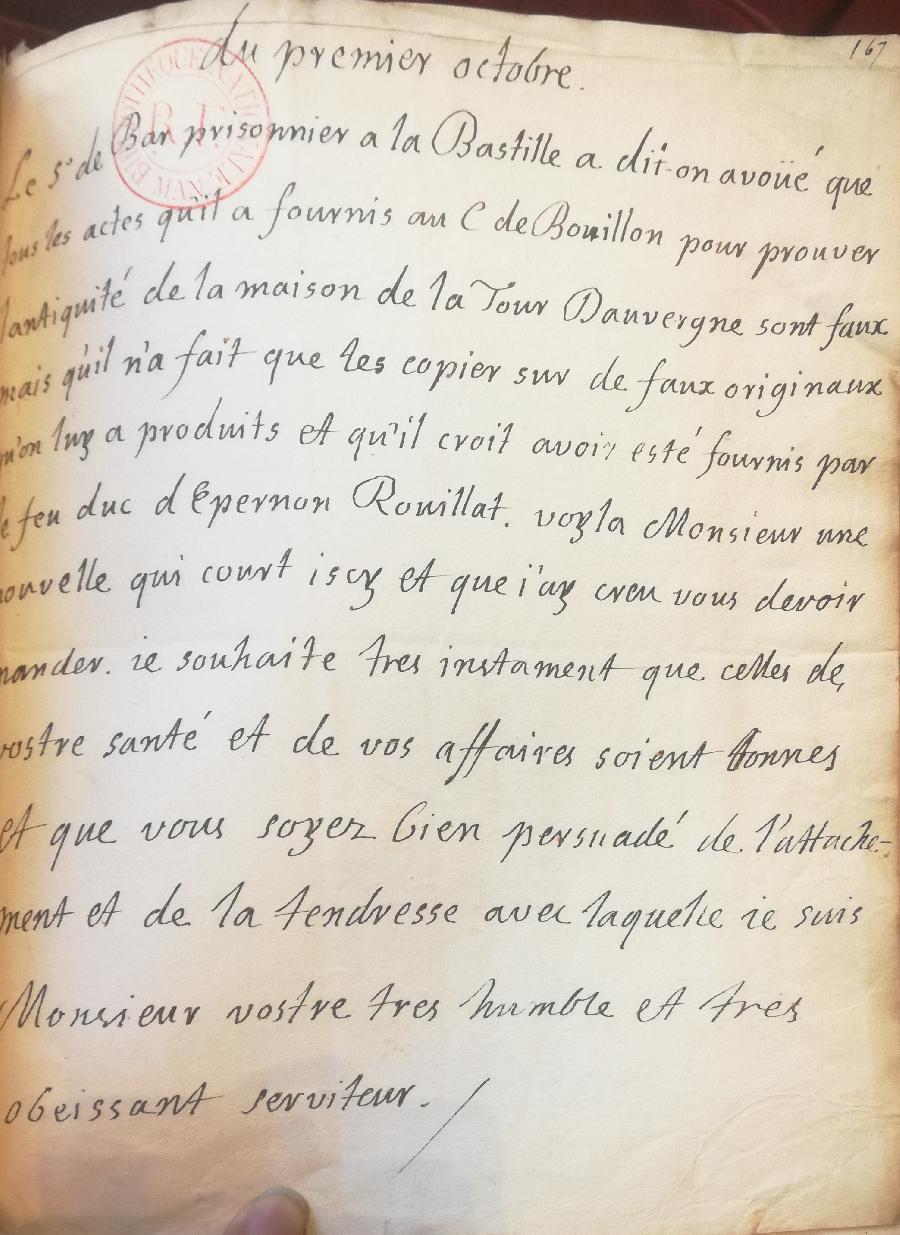 167
du premier octobre.
Le Sr de Bar prisonnier a la Bastille a dit-on avoüé que
tous les actes qu'il a fournis au C de Bouillon pour prouver
lantiquité de la maison de la Tour Dauvergne sont faux
mais qu'il n'a fait que les copier sur de faux originaux
qu'on luy a produits et qu'il croit avoir esté fournis par
le feu duc dEpernon Rouillat. voyla Monsieur une
nouvelle qui court iscy et que i'ay creu vous devoir
mander. ie souhaite tres instament que celles de
vostre santé et de vos affaires soient bonnes
et que vous soyez bien persuadé de l'attache-
ment et de la tendresse avec laquelle ie suis
Monsieur vostre tres humble et tres
obeissant serviteur.
BIBLIOTHEQUE NATIONALE
R.F.